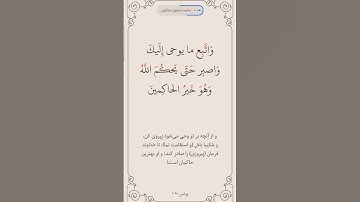 وَاتَّبِع ما يوحى إِلَيكَ
وَاصبِر حَتّى يَحكُمَ اللَّهُ
وَهُوَ خَيرُ الحاكِمينَ
و از آنچه بر تو وحی می‌شود پیروی کن،
و شکیبا باش (و استقامت نما)، تا خداوند
فرمان (پیروزی) را صادر کند؛ و او بهترین
حاکمان است!
یونس: ۱۰۹